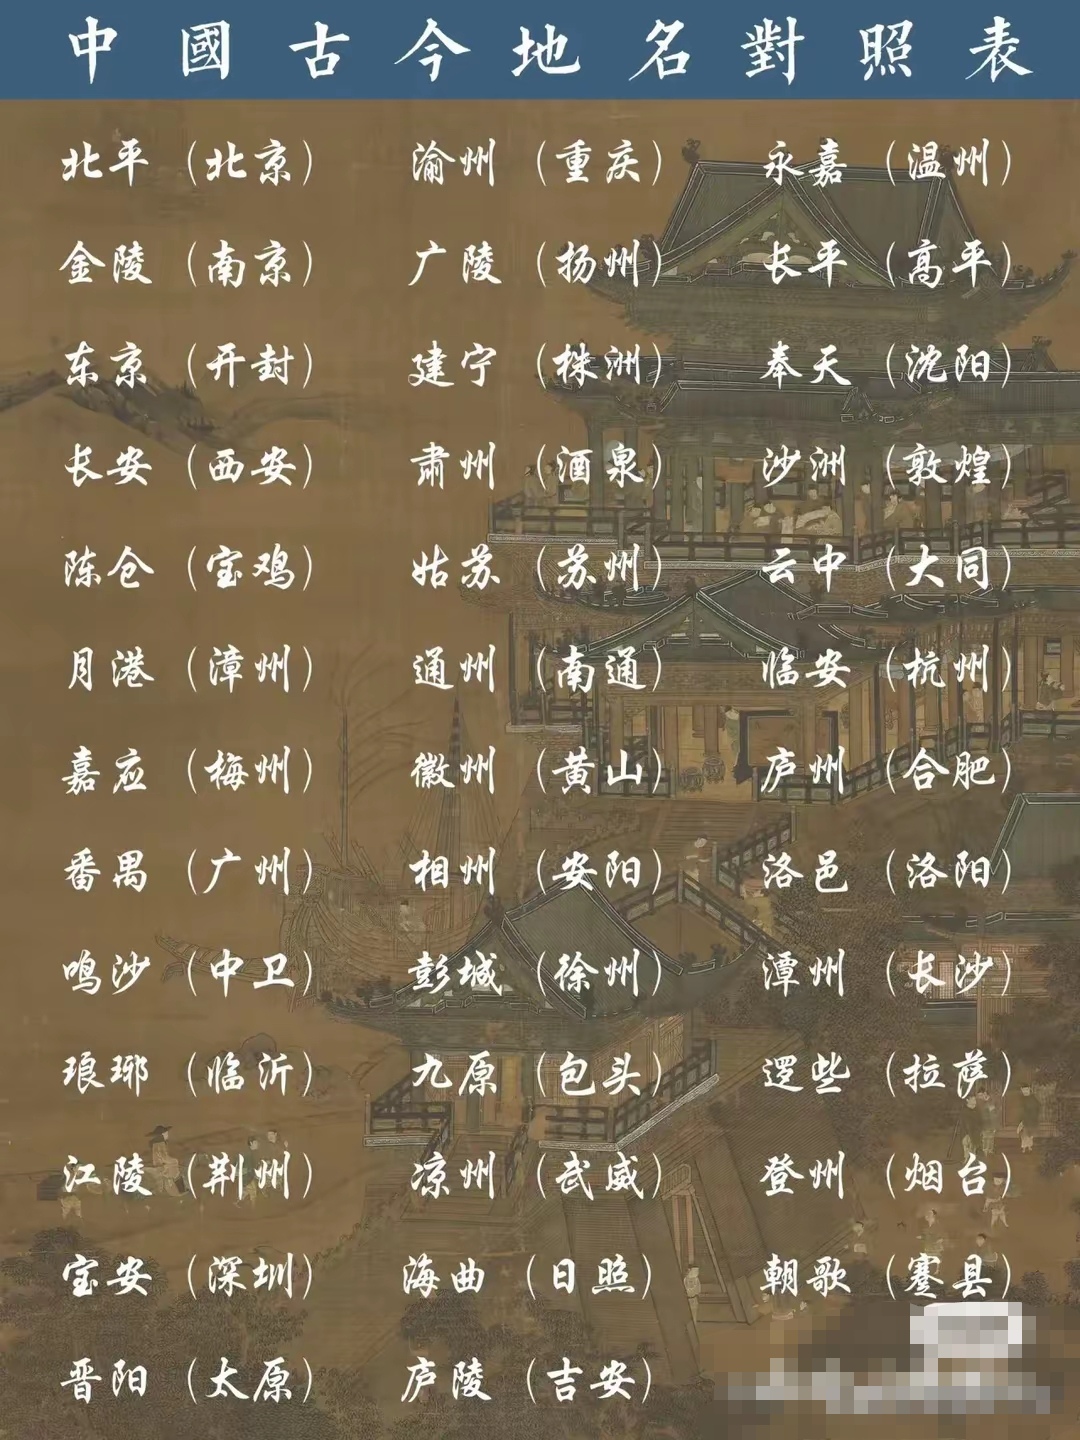 中國古今地名對照表
北平（北京） 渝州（重庆） 永嘉（温州）
金陵（南京） 广陵（扬州） 长平（高平）
东京（开封） 建宁（株洲） 奉天（沈阳）
长安（西安） 肃州（酒泉） 沙洲（敦煌）
陈仓（宝鸡） 姑苏（苏州） 云中（大同）
月港（漳州） 通州（南通） 临安（杭州）
嘉应（梅州） 徽州（黄山） 庐州（合肥）
番禺（广州） 相州（安阳） 洛邑（洛阳）
鸣沙（中卫） 彭城（徐州） 潭州（长沙）
琅琊（临沂） 九原（包头） 逻些（拉萨）
江陵（荆州） 凉州（武威） 登州（烟台）
宝安（深圳） 海曲（日照） 朝歌（蹇县）
晋阳（太原） 庐陵（吉安）